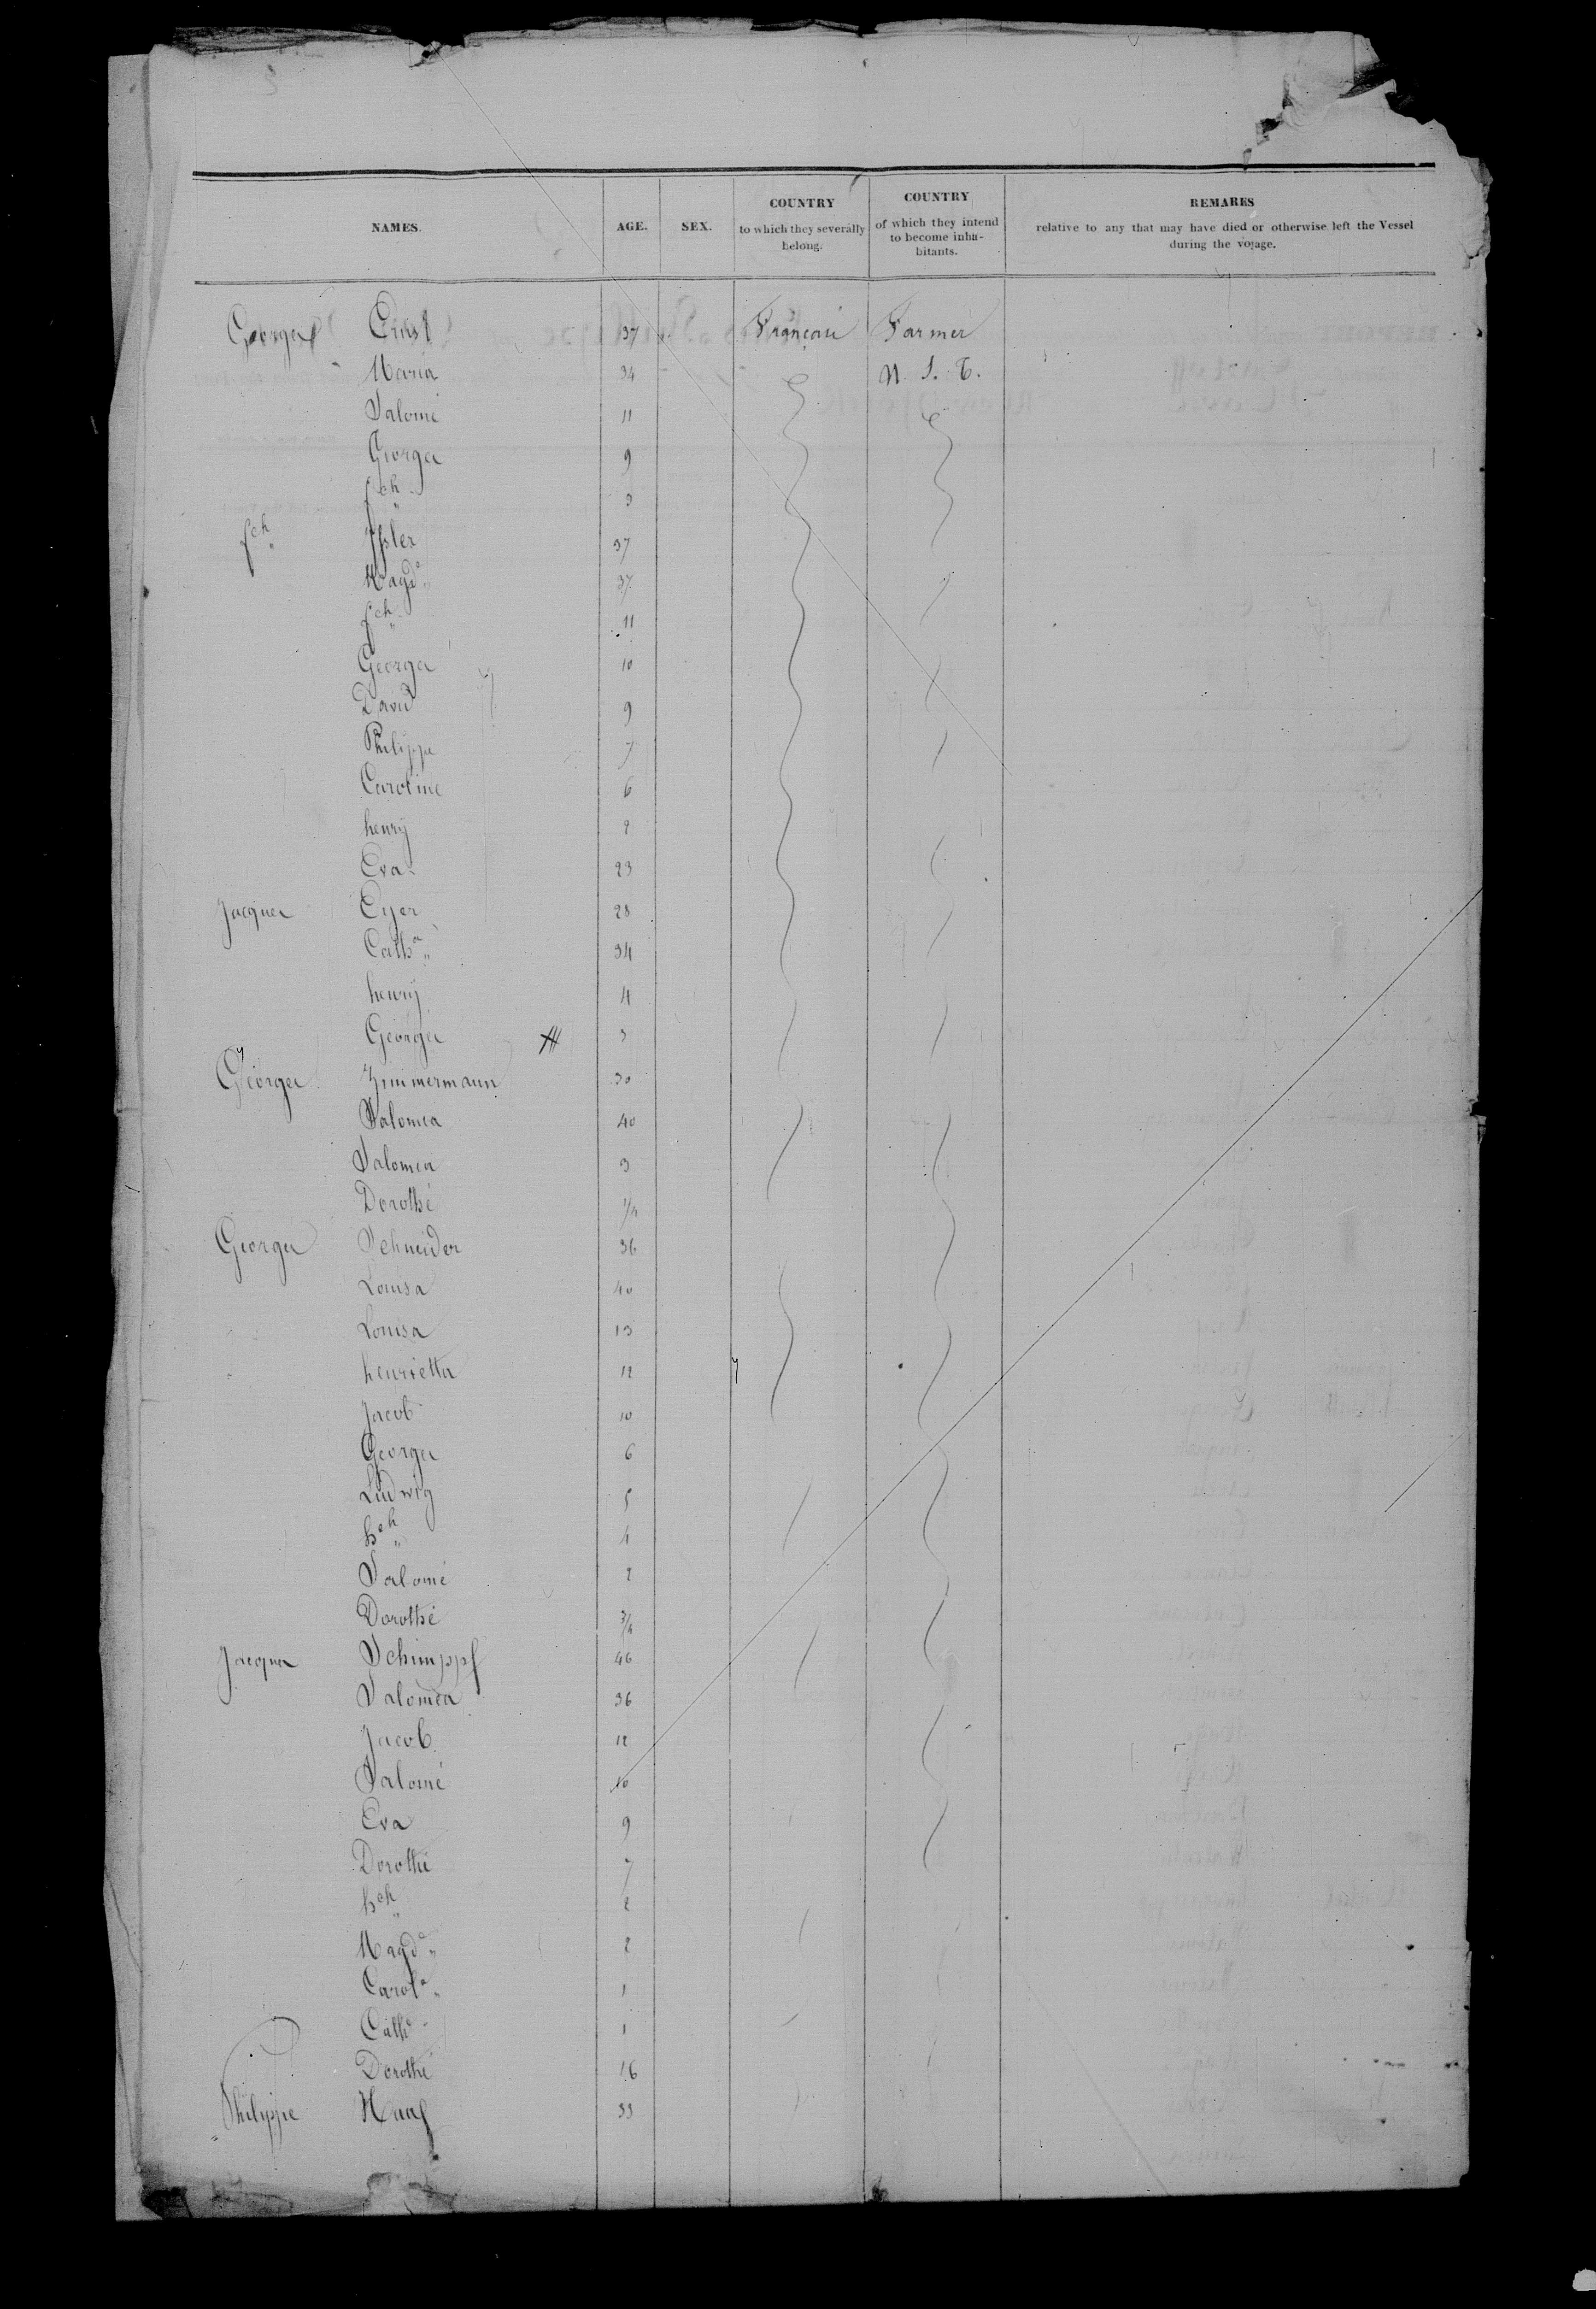 NAMES. AGE. SEX. COUNTRY to which they severally belong. COUNTRY of which they intend to become inha- bitants. REMARKS relative to any that may have died or otherwise left the Vessel during the voyage.
George Ernst 37 Français Farmer
Maria 34 U. S. T.
Salomé 11
George 9
Jch 3
Jch Ißler 37
Magd 37
Jch 11
George 10
David 9
Philippe 7
Caroline 6
henry 2
Eva 23
Jacques Eyer 28
Cath 34
henry 4
George 3
George Zimmermann 30
Salomea 40
Salomea 3
Dorothé 1/4
George Schneider 36
Louisa 40
Louisa 13
henrietta 12
Jacob 10
George 6
Ludwig 5
hch 4
Salomé 2
Dorothé 3/4
Jacques Schimppf 46
Salomea 36
Jacob 12
Salomé 10
Eva 9
Dorothé 7
hch 2
Magd 2
Carol 1
Cath 1
Dorothé 16
Philippe Haas 33